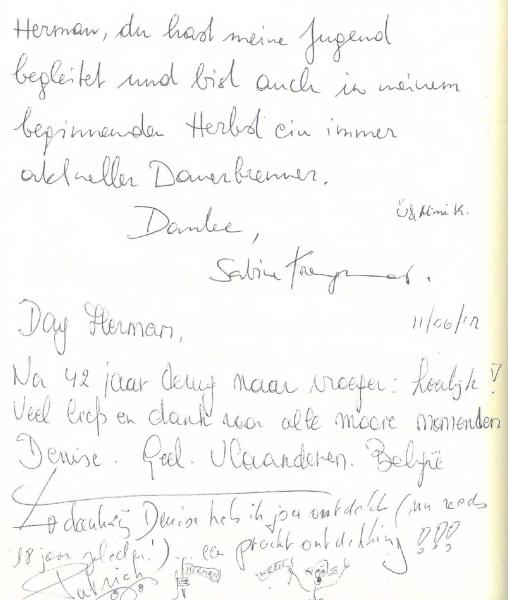 Herman, du hast meine Jugend
begleitet und bist auch in meinem
beginnenden Herbst ein immer
aktueller Dauerbrenner.
Danke,
Ü & Mimi K.
Sabine
Day Herman,
11/06/12
Na 42 jaar terug naar vroeger: heerlijk!
Veel liefs en dank voor alle mooie momenten
Denise. Geel. Vlaanderen. België
dankzij Denise heb ik jou ontdekt (nu reeds
18 jaar geleden!) een pracht ontdekking !!!
Patrick
HERMAN